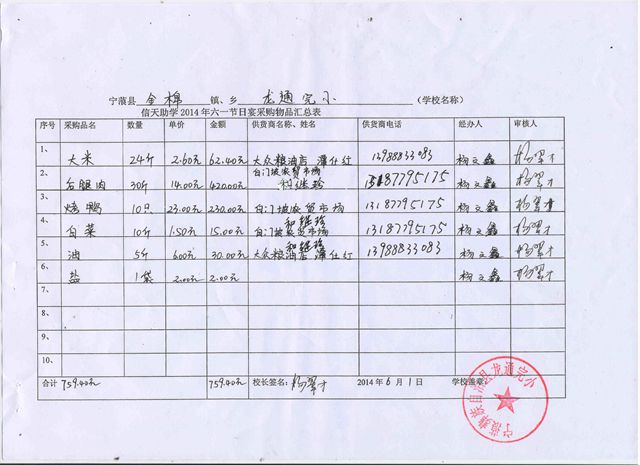 宁蒗县 金棉 镇、乡 龙通完小 (学校名称)
信天助学 2014 年六一节日宴采购物品汇总表
序号 采购品名 数量 单价 金额 供货商名称、姓名 供货商电话 经办人 审核人
1、 大米 24斤 2.60元 62.40元 大众粮油店 13988833083 杨文鑫 杨翠才
2、 后腿肉 30斤 14.00元 420.00元 白门坡农贸市场 和继珍 13187795175 杨文鑫 杨翠才
3、 烤鸭 10只 23.00元 230.00元 白门坡农贸市场 和继珍 13187795175 杨文鑫 杨翠才
4、 白菜 10斤 1.50元 15.00元 白门坡农贸市场 和继珍 13187795175 杨文鑫 杨翠才
5、 油 5斤 6.00元 30.00元 大众粮油店 13988833083 杨文鑫 杨翠才
6、 盐 1袋 2.00元 2.00元 杨文鑫 杨翠才
7、
8、
9、
10、
合计 759.40元 759.40元 校长签名: 杨翠才 2014 年 6 月 1 日 学校盖章:
宁蒗彝族自治县龙通完小